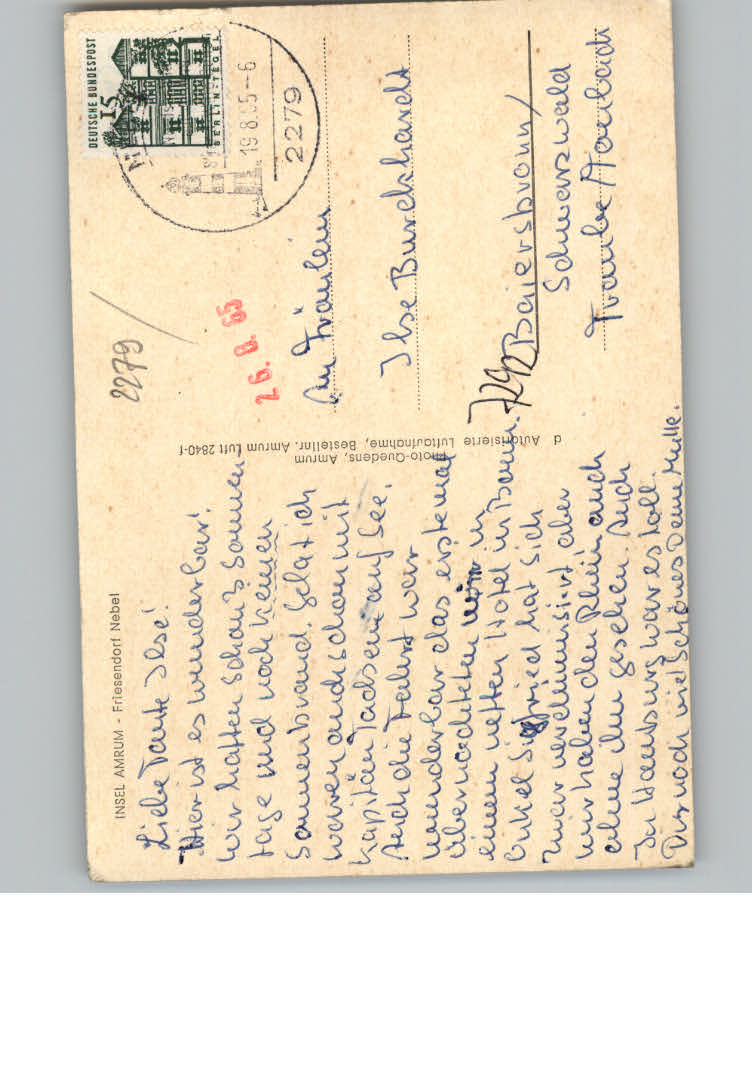 INSEL AMRUM - Friesendorf Nebel
Liebe Tante Ilse!
Hier ist es wunderbar!
Wir hatten schon 3 Sonnen
tage und noch keinen
Sonnenbrand. Gelat ich
waren auch schon mit
Kapitän Tadsen auf See.
Auch die Fahrt war
wunderbar das erstemal
übernachteten wir in
einem netten Hotel in Bonn.
Onkel Siegfried hat sich
zwar aber
wir haben den Rhein auch
ohne ihn gesehen. Auch
In Hamburg war es toll.
noch viel Schönes Deine
Foto-Quedens, Amrum
d Autorisierte Luftaufnahme, Bestellnr. Amrum Luft 2840-f
DEUTSCHE BUNDESPOST
15
BERLIN-TEGEL
19.8.65-6
2279
2279
26. 8. 65
An Fräulein
Ilse Burckhardt
7292 Baiersbronn/
Schwarzwald
Traube